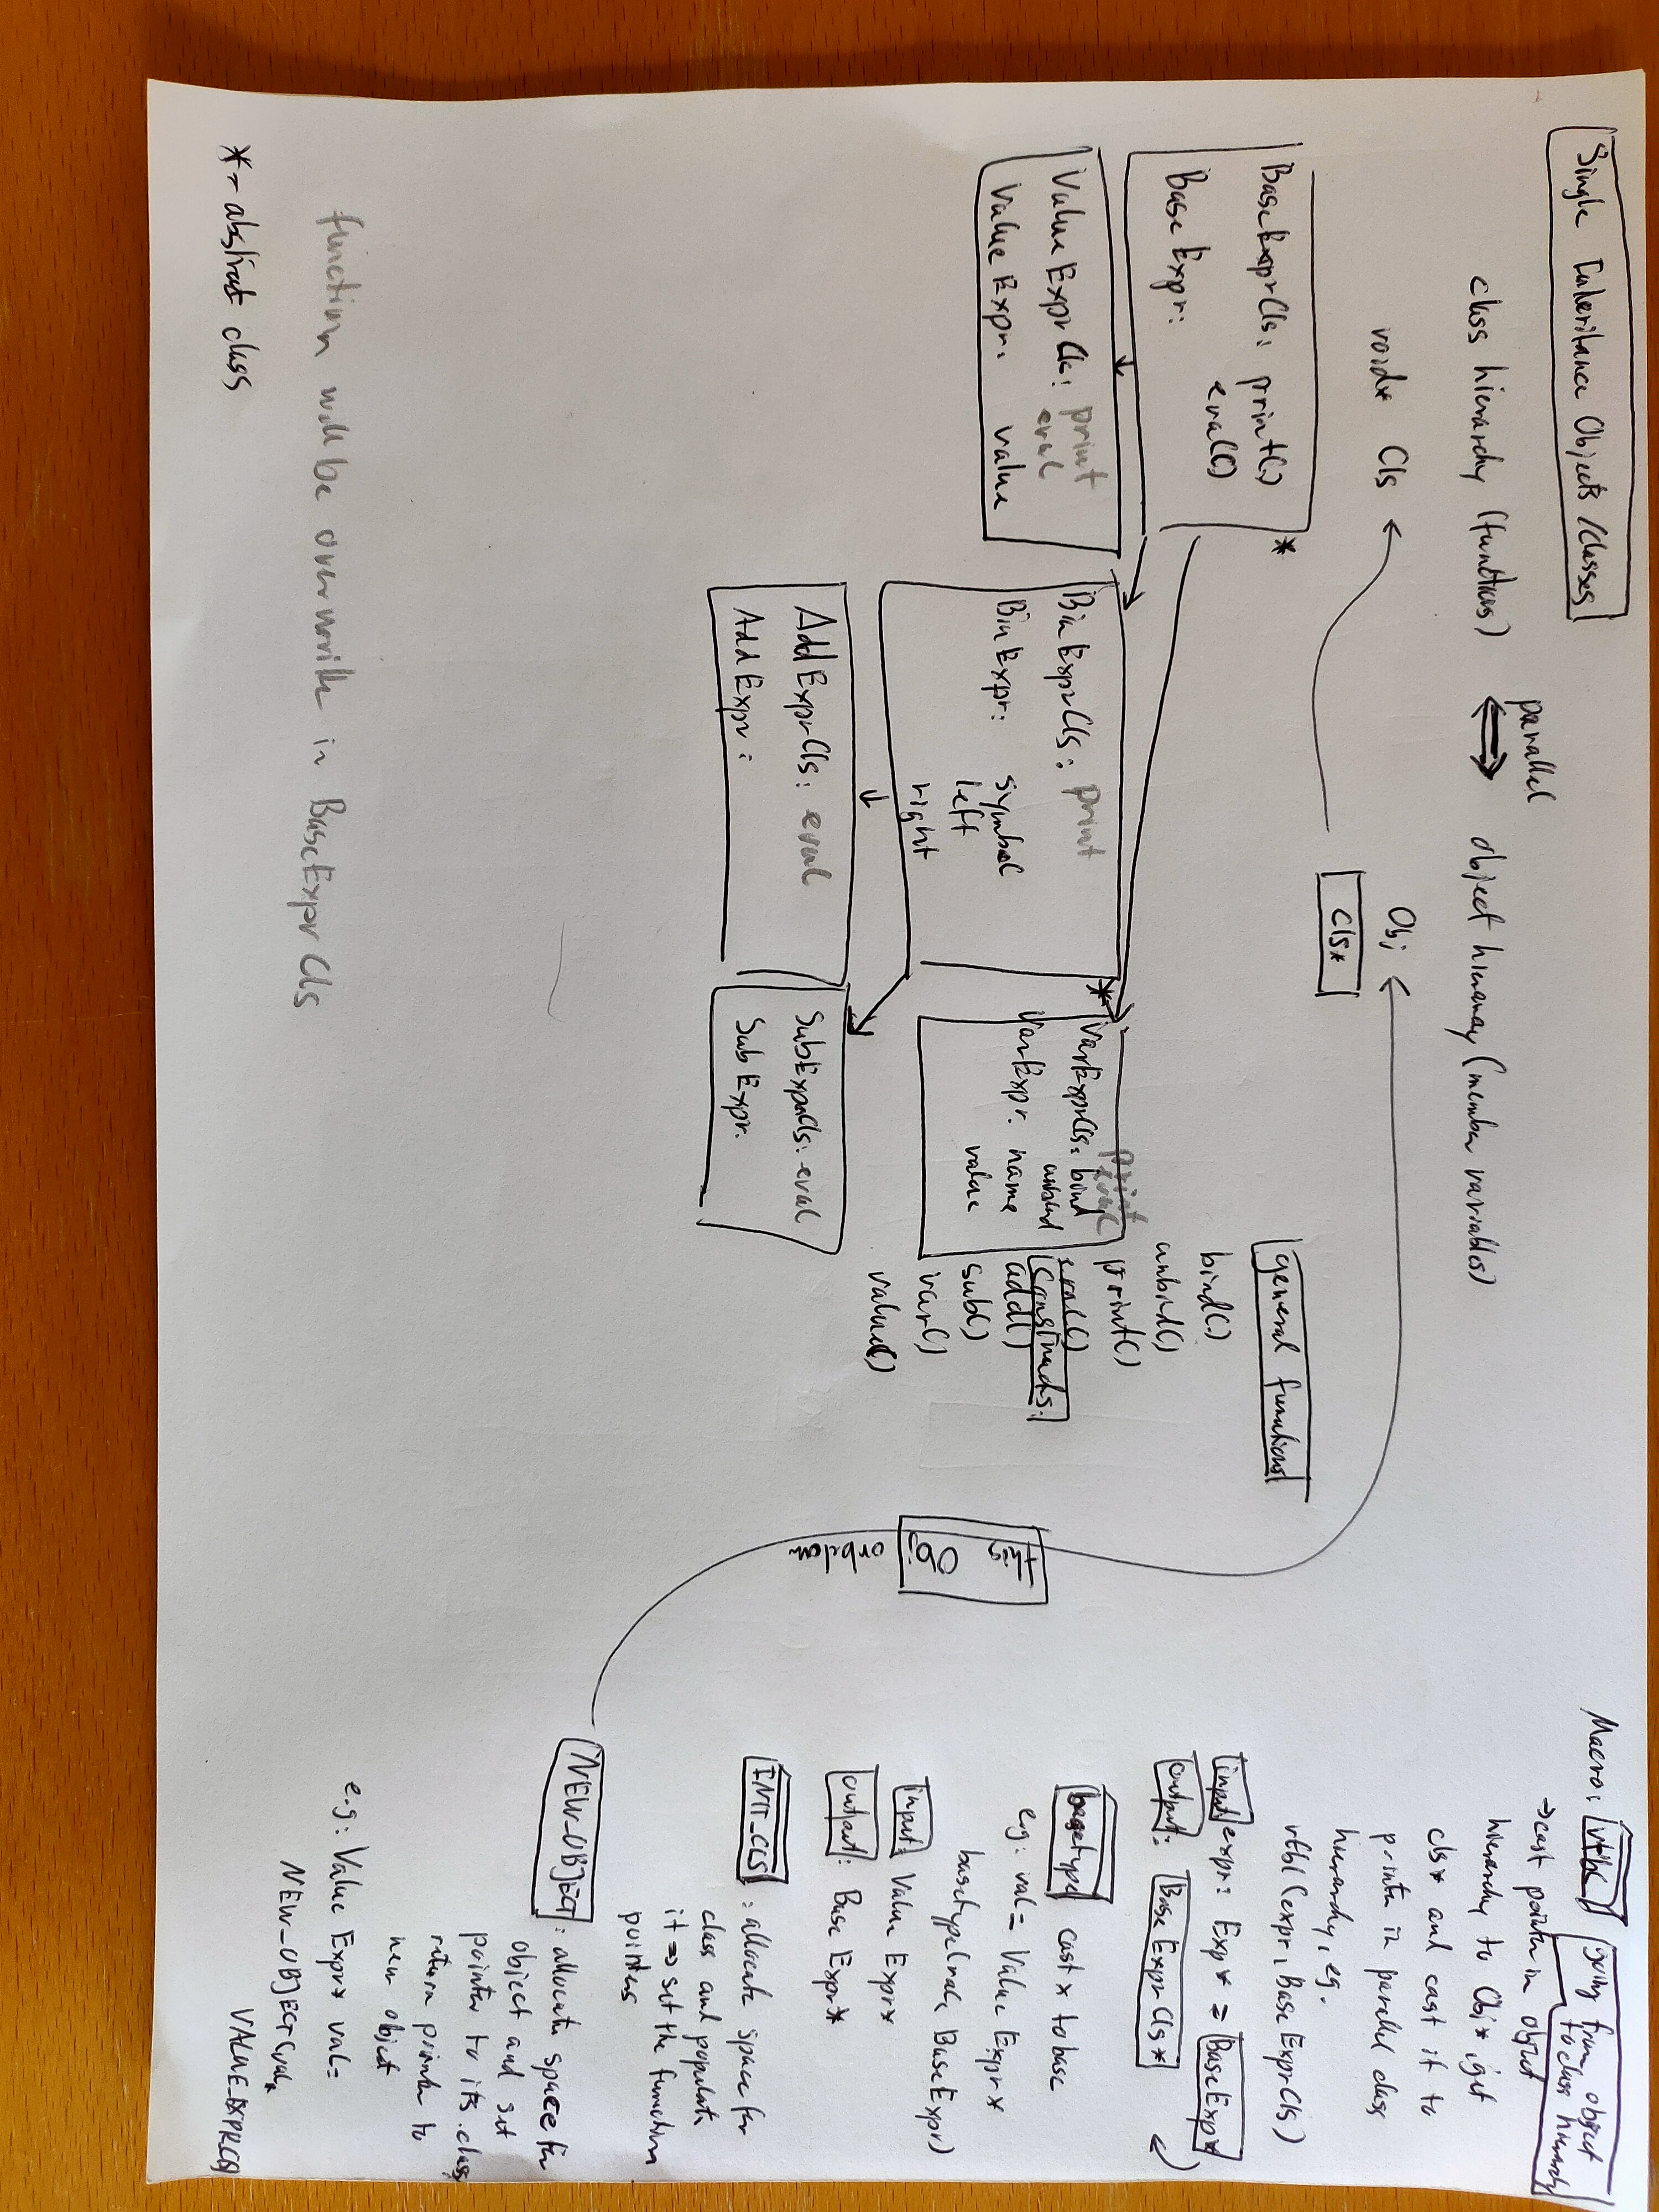 Single Inheritance Objects/classes
class hierarchy (functions)
parallel
object hierarchy (member variables)
void* Cls
Obj
cls*
BaseExprCls: print()
eval()
BaseExpr:
*
ValueExprCls: print
eval
ValueExpr: value
BinExprCls: print
BinExpr: symbol
left
right
*
VarExprCls: bind
print
eval
unbind
VarExpr: name
value
AddExprCls: eval
AddExpr:
SubExprCls: eval
SubExpr:
general functions
bind()
unbind()
print()
eval()
add()
sub()
var()
value()
Obj
function will be overwrite in BaseExprCls
*- abstract class
Macro: vtbl going from object
to class hierarchy
→cast pointer in object
hierarchy to Obj*, get
cls* and cast it to
pointer in parallel class
hierarchy, eg.
vtbl(expr, BaseExprCls)
input expr: Exp* = BaseExpr*
output: BaseExprCls*
basetype cast x to base
e.g: val = ValueExpr*
basetype( BaseExpr)
input: ValueExpr*
output: BaseExpr*
INIT_CLS : allocate space for
class and populate
it => set the function
pointers
NEW_OBJECT : allocate space for
object and set
pointer to its class
return pointer to
new object
e.g: ValueExpr* val=
NEW_OBJECT(val,
VALUE_EXPRCLS)